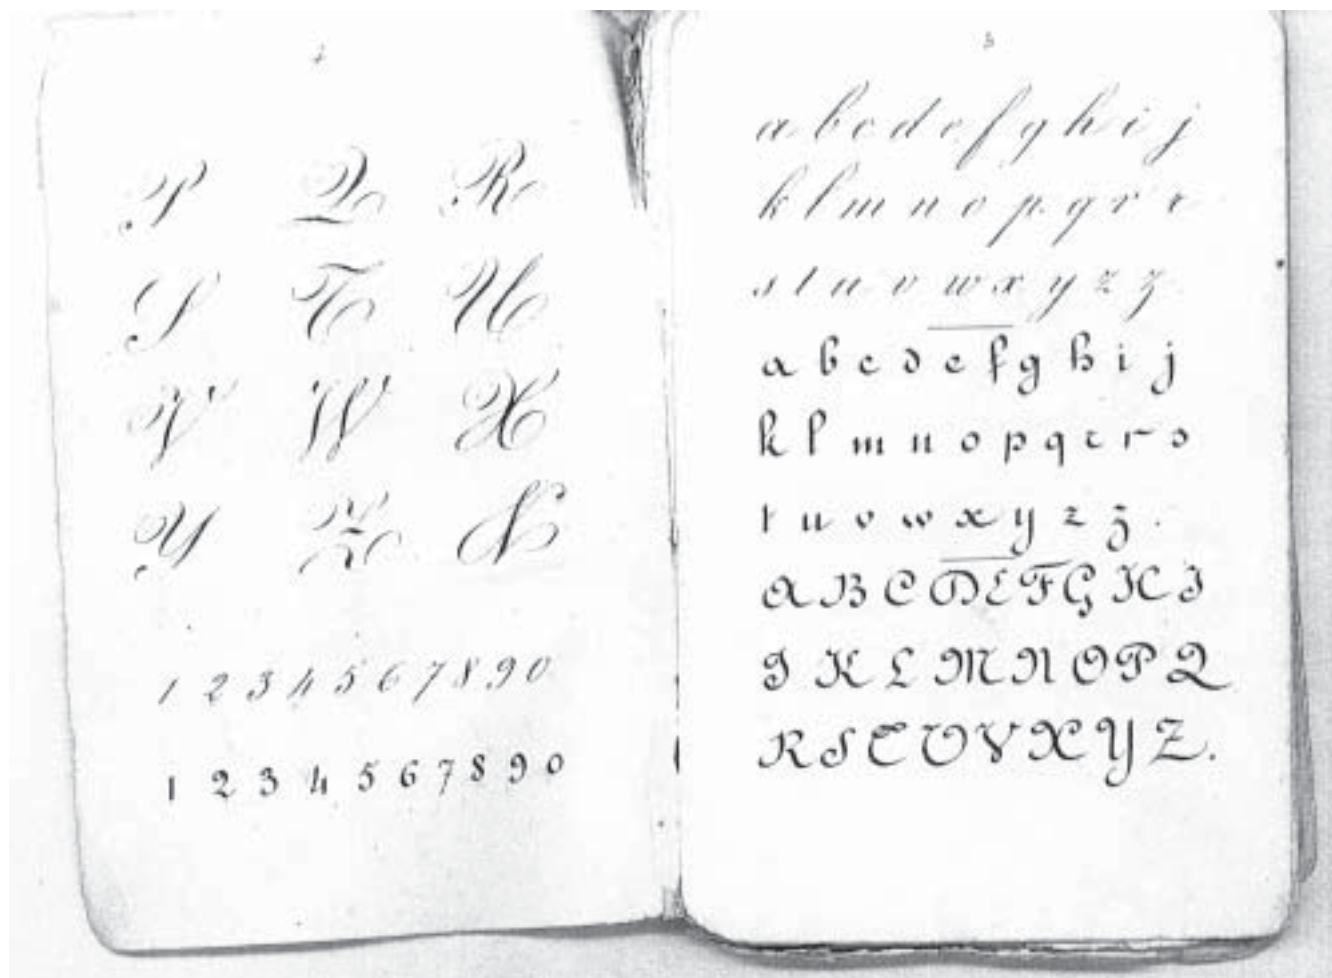 P Q R
S T U
V W X
Y Z N
1 2 3 4 5 6 7 8 9 0
1 2 3 4 5 6 7 8 9 0
3
a b c d e f g h i j
k l m n o p q r r
s t u v w x y z z
a b c d e f g h i j
k l m n o p q r r s
t u v w x y z z .
A B C D E F G H I
J K L M N O P Q
R S T U V X Y Z.